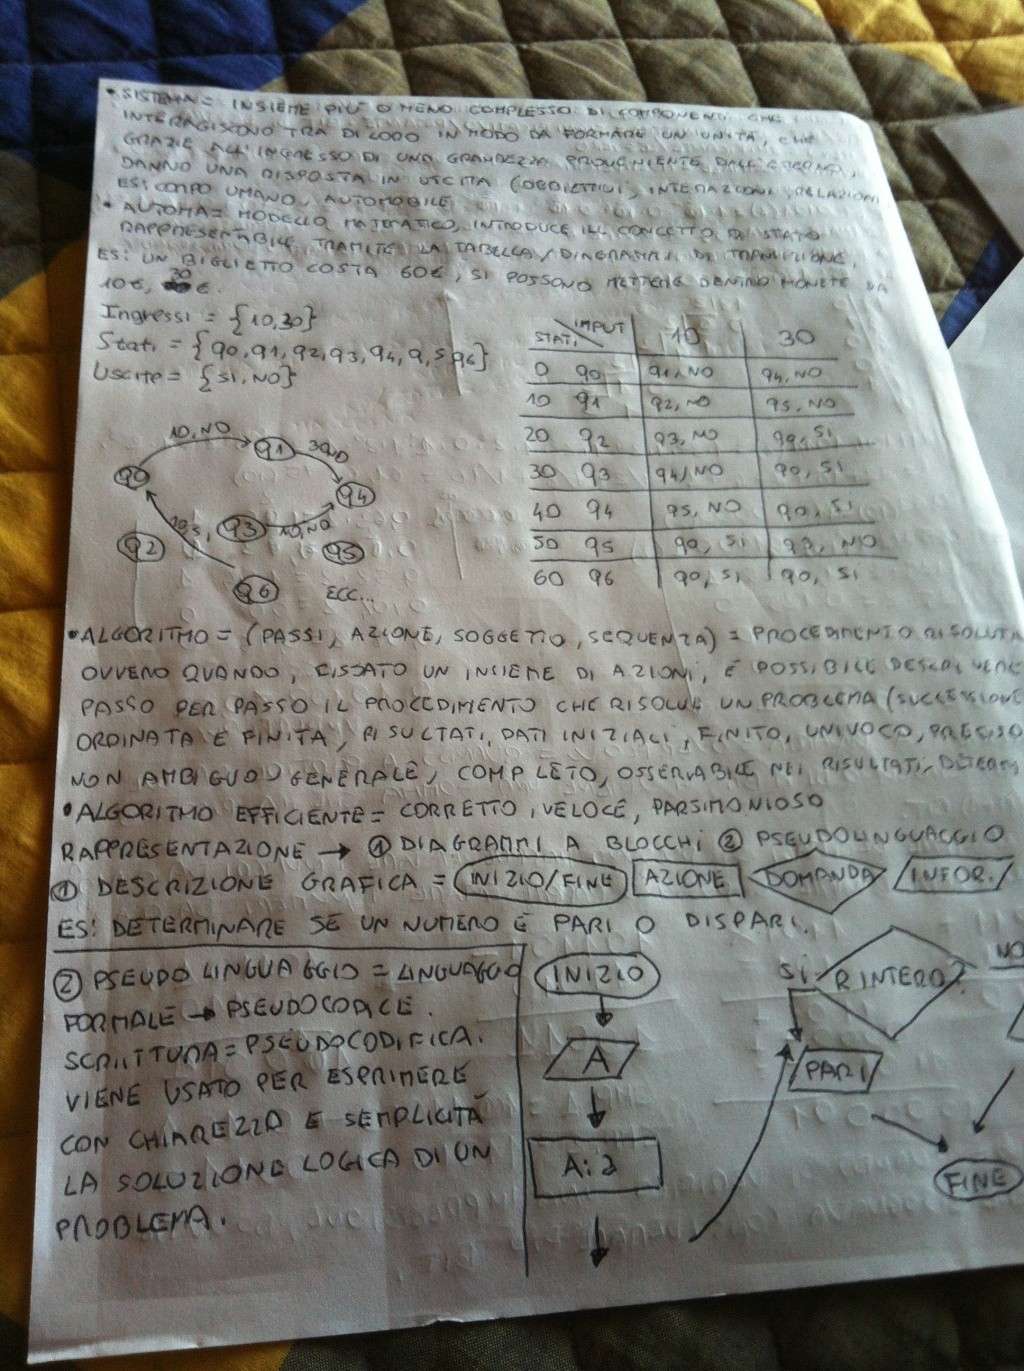 • SISTEMA = INSIEME PIÙ O MENO COMPLESSO DI COMPONENTI CHE
INTERAGISCONO TRA DI LORO IN MODO DA FORMARE UN UNITÀ, CHE
GRAZIE ALL'INGRESSO DI UNA GRANDEZZA PROVENIENTE DALL'ESTERNO,
DANNO UNA RISPOSTA IN USCITA (OBBIETTIVI, INTERAZIONI, RELAZIONI
ES: CORPO UMANO, AUTOMOBILE
• AUTOMA = MODELLO MATEMATICO, INTRODUCE ILL CONCETTO DI STATO
RAPPRESENTABILE TRAMITE LA TABELLA/DIAGRAMMI DI TRANSIZIONE,
ES: UN BIGLIETTO COSTA 60€, SI POSSONO METTERE DENTRO MONETE DA
10€, 30 €.
Ingressi = {10,30}
Stati = {q0, q1, q2, q3, q4, q,5 q6}
Uscite = {SI, NO}
STATI IMPUT 10 30
0 q0 q1, NO q4, NO
10 q1 q2, NO q5, NO
20 q2 q3, NO q9, SI
30 q3 q4, NO q0, SI
40 q4 q5, NO q0, SI
50 q5 q0, SI q3, NO
60 q6 q0, SI q0, SI
10, NO
q1
q0
q4
q3
10, NO
q2
q5
q6
ECC...
• ALGORITMO = (PASSI, AZIONE, SOGGETTO, SEQUENZA) = PROCEDIMENTO RISOLUTI
OVVERO QUANDO, FISSATO UN INSIEME DI AZIONI, È POSSIBILE DESCRIVERE
PASSO PER PASSO IL PROCEDIMENTO CHE RISOLVE UN PROBLEMA (SUCCESSIONE
ORDINATA E FINITA, RISULTATI, DATI INIZIALI, FINITO, UNIVOCO, PRECISO
NON AMBIGUO, GENERALE, COMPLETO, OSSERVABILE NEI RISULTATI,
• ALGORITMO EFFICIENTE = CORRETTO, VELOCE, PARSIMONIOSO
RAPPRESENTAZIONE → ① DIAGRAMMI A BLOCCHI ② PSEUDOLINGUAGGIO
① DESCRIZIONE GRAFICA = INIZIO/FINE AZIONE DOMANDA INFOR.
ES: DETERMINARE SE UN NUMERO È PARI O DISPARI.
② PSEUDO LINGUAGGIO = LINGUAGGIO
FORMALE → PSEUDOCODICE.
SCRIITTURA = PSEUDOCODIFICA.
VIENE USATO PER ESPRIMERE
CON CHIAREZZA E SEMPLICITÀ
LA SOLUZIONE LOGICA DI UN
PROBLEMA.
INIZIO
A
A:2
SI
R INTERO?
NO
PARI
FINE